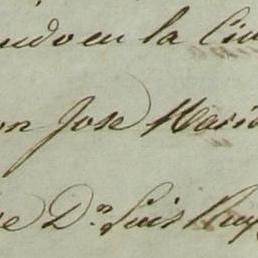 en la Ciu
on Jose Maria
e Dn Luis Ruy